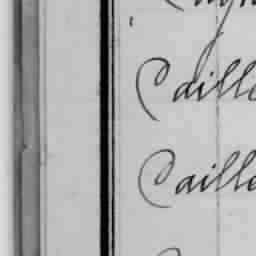 Caille
Caille